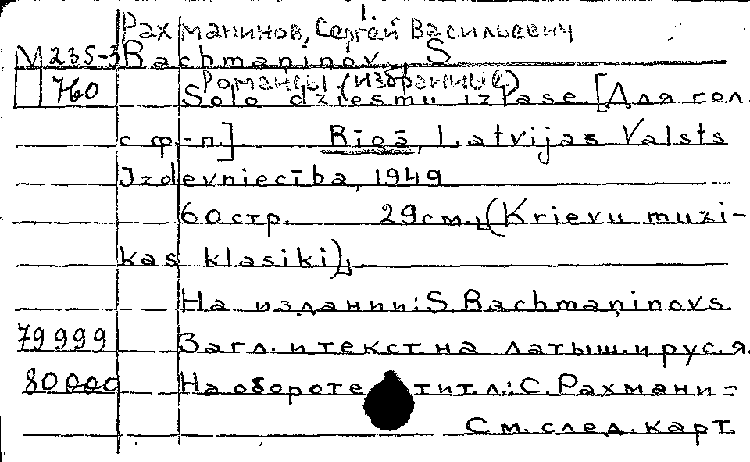 Рахманинов, Сергей Васильевич
M 235-3 Rachmaņinov, S
760 Романсы (избранные)
Solo dziesmu izlase [Для гол.
с ф.-п.] Rīgā, Latvijas Valsts
Izdevniecība, 1949
60 стр. 29 см., (Krievu muzi-
kas klasiki),
На издании: S. Rachmaņinovs
79999 Загл. и текст на латыш. и рус. я.
80000 На обороте тит. л.: С. Рахмани=
См. след. карт.